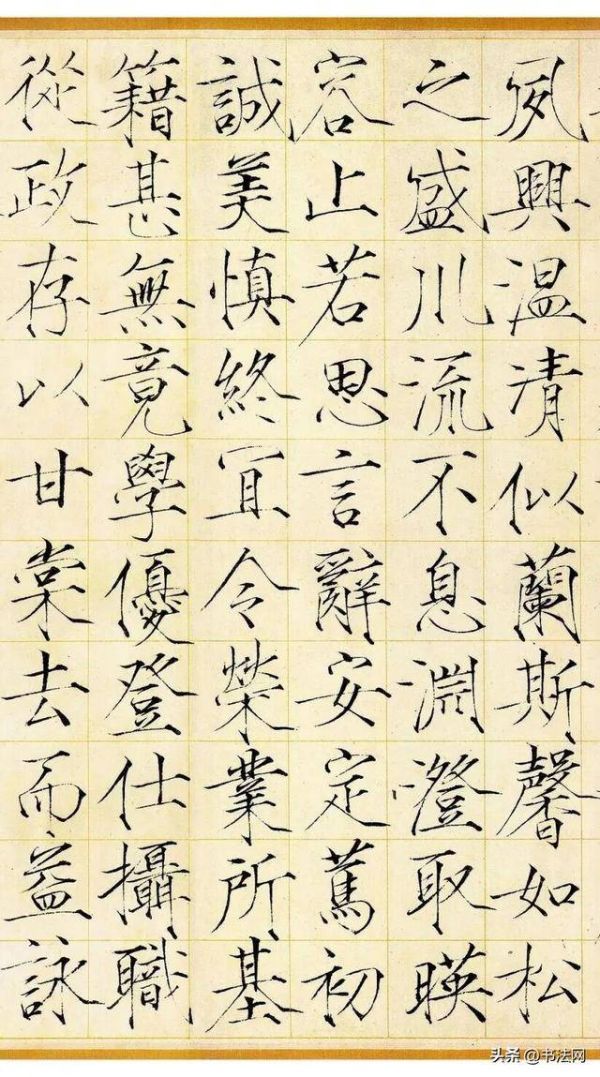 夙興温凊似蘭斯馨如松
之盛川流不息淵澄取暎
容止若思言辭安定篤初
誠美慎終宜令榮業所基
籍甚無竟學優登仕攝職
從政存以甘棠去而益詠
头条 @书法网